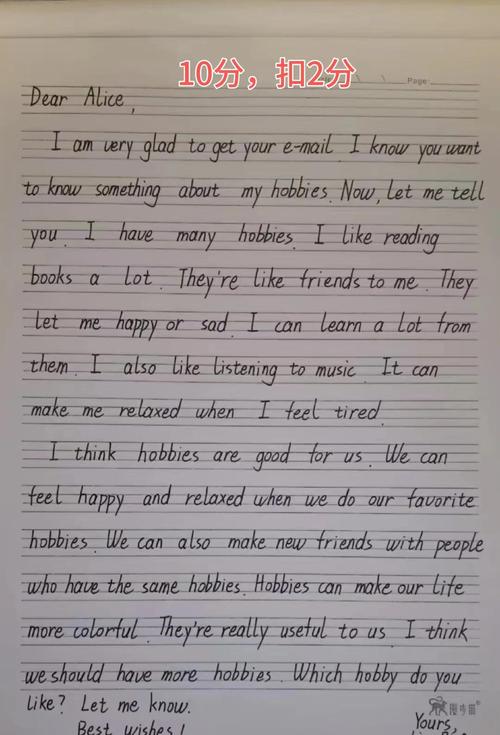 10分，扣2分
Page:
Dear Alice,
I am very glad to get your e-mail. I know you want
to know something about my hobbies. Now, Let me tell
you. I have many hobbies. I like reading
books a lot. They're like friends to me. They
let me happy or sad. I can learn a lot from
them. I also like listening to music. It can
make me relaxed when I feel tired.
I think hobbies are good for us. We can
feel happy and relaxed when we do our favorite
hobbies. We can also make new friends with people
who have the same hobbies. Hobbies can make our life
more colorful. They're really useful to us. I think
we should have more hobbies. Which hobby do you
like? Let me know.
Best wishes!
Yours,